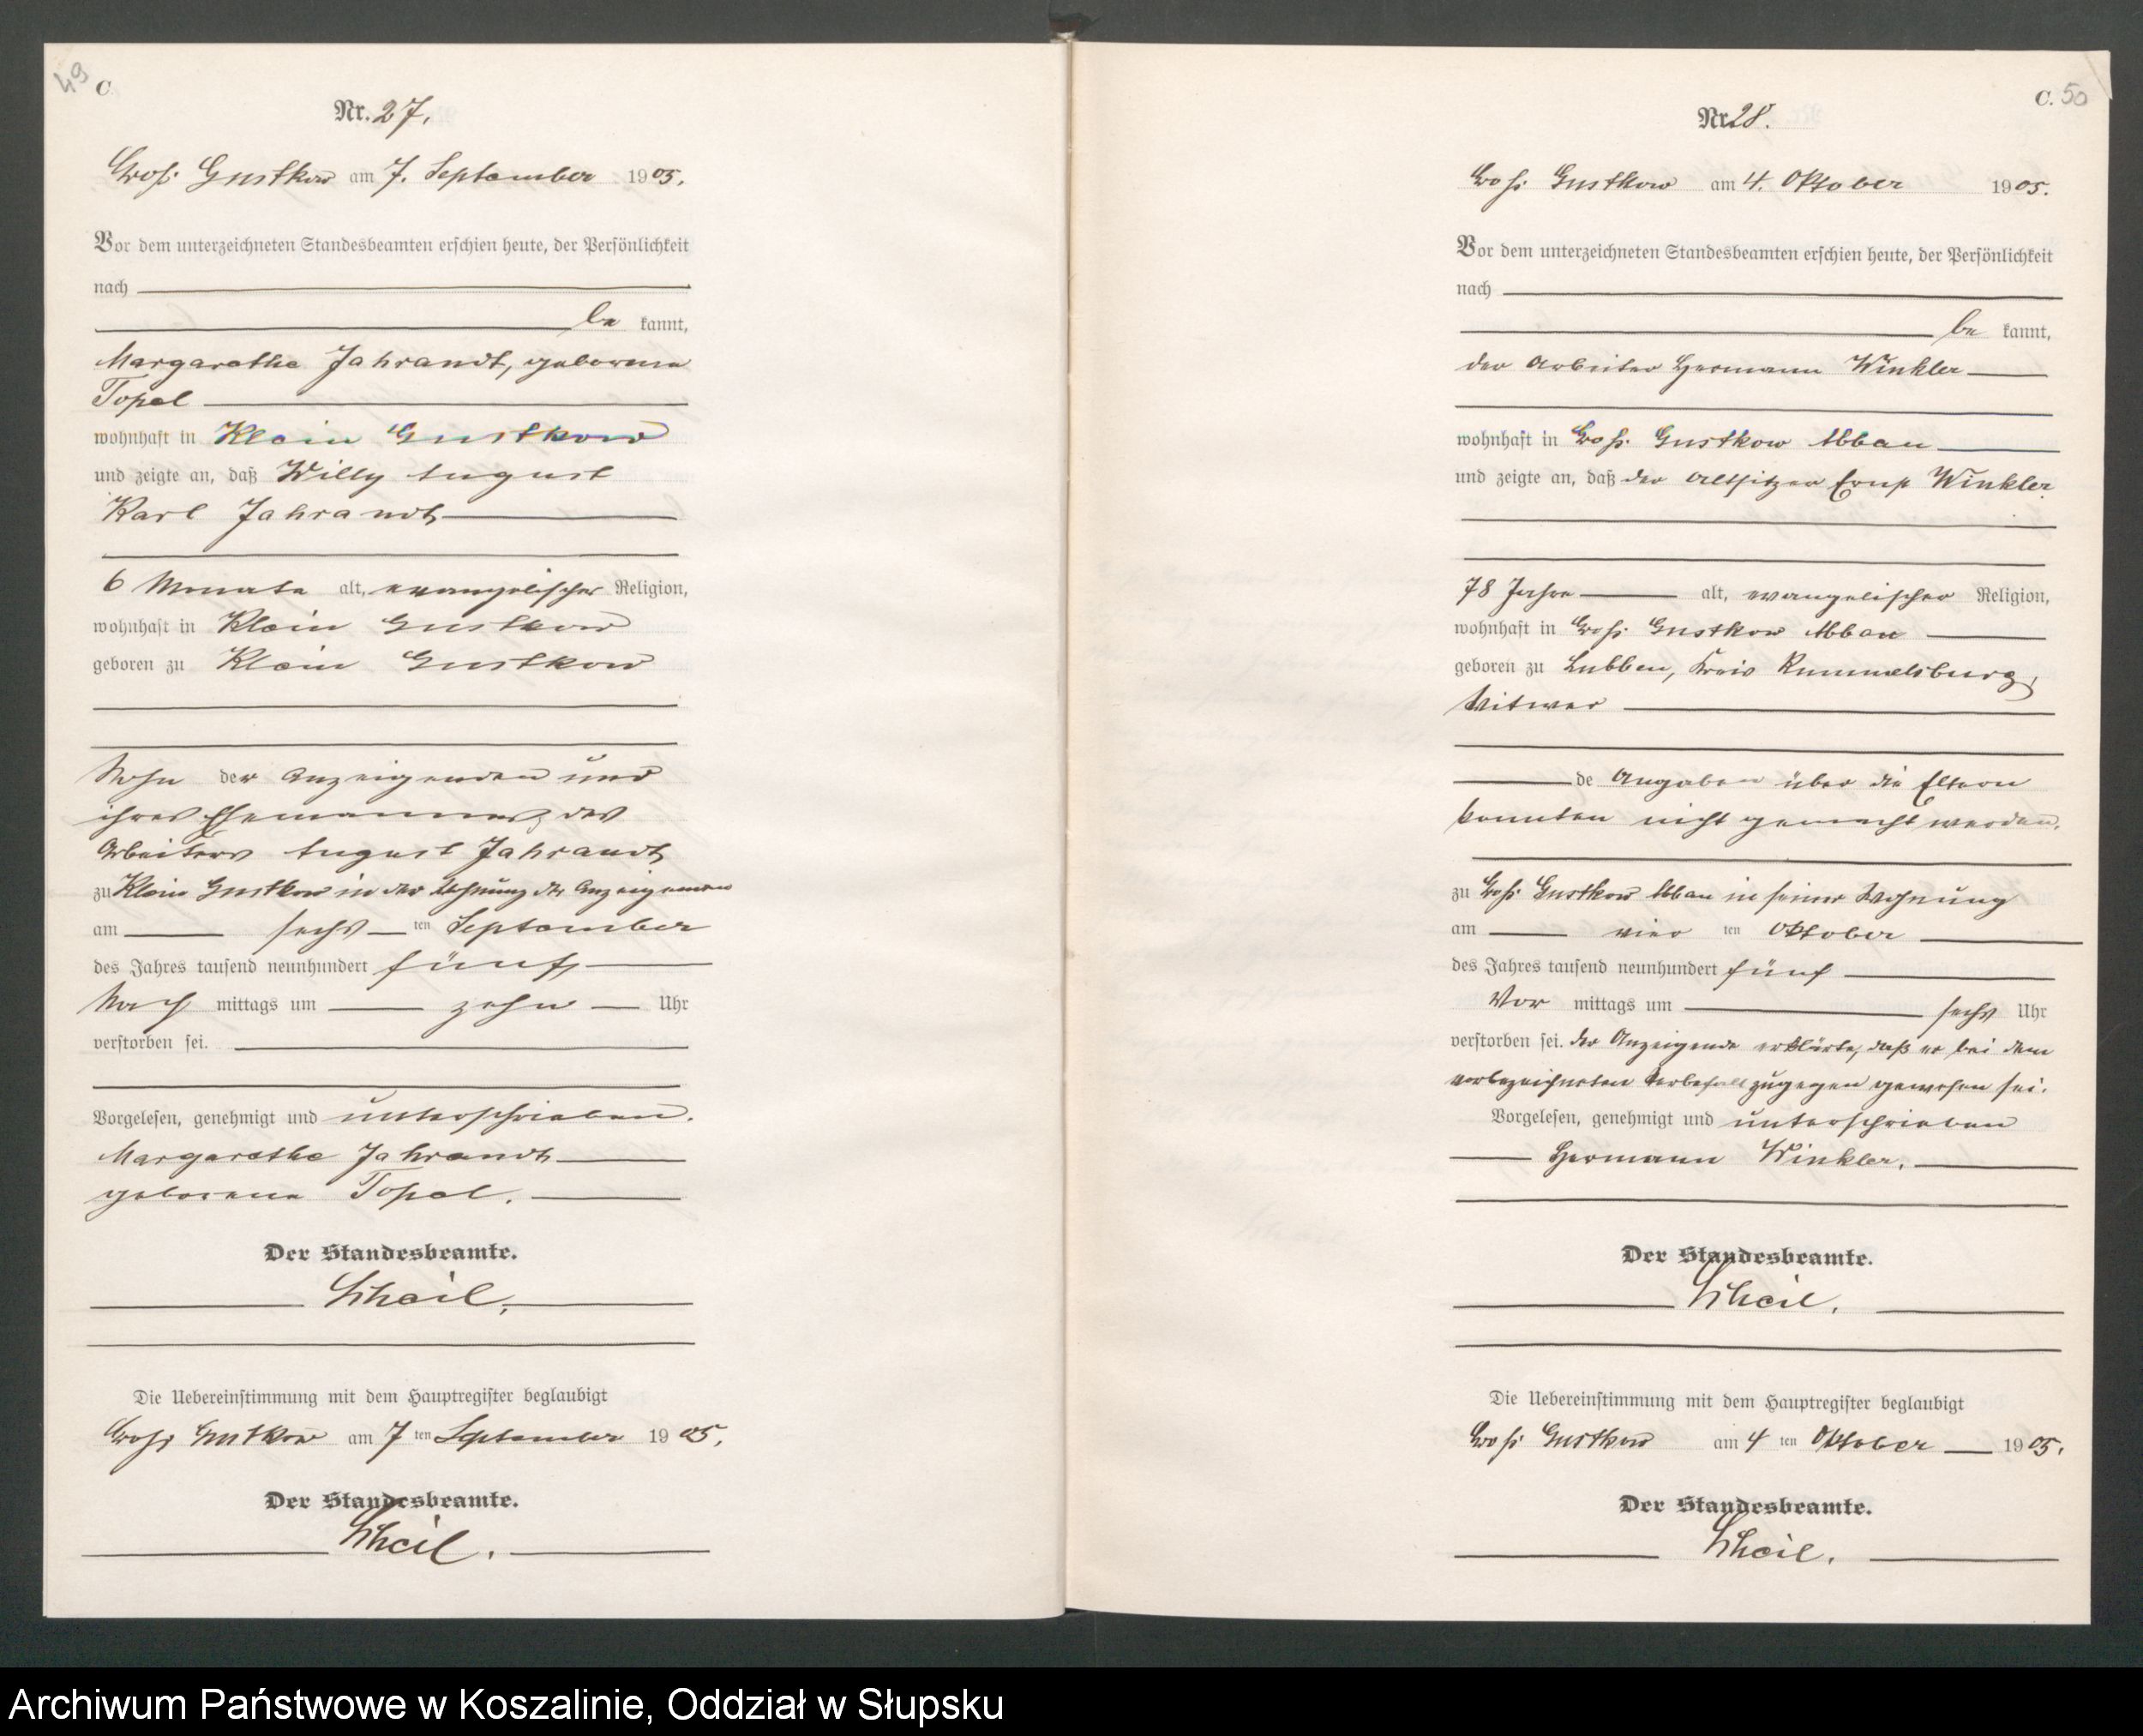 49
C
Nr. 27.
Groß Gustkow am 7. September 1905.
Vor dem unterzeichneten Standesbeamten erschien heute, der Persönlichkeit
nach
be kannt,
Margarethe Jahrandt, geborene
Topel
wohnhaft in Klein Gustkow
und zeigte an, daß Willy August
Karl Jahrandt
6 Monate alt, evangelischer Religion,
wohnhaft in Klein Gustkow
geboren zu Klein Gustkow
Sohn der Anzeigenden und
ihres Ehemannes, des
Arbeiters August Jahrandt
zu Klein Gustkow in der Wohnung der Anzeigenden
am sechs ten September
des Jahres tausend neunhundert fünf
Nach mittags um zehn Uhr
verstorben sei.
Vorgelesen, genehmigt und unterschrieben.
Margarethe Jahrandt
geborene Topel.
Der Standesbeamte.
Scheil.
Die Uebereinstimmung mit dem Hauptregister beglaubigt
Groß Gustkow am 7 ten September 1905.
Der Standesbeamte.
Scheil.
C. 50
Nr. 28.
Groß Gustkow am 4. Oktober 1905.
Vor dem unterzeichneten Standesbeamten erschien heute, der Persönlichkeit
nach
be kannt,
der Arbeiter Hermann Winkler
wohnhaft in Groß Gustkow Abbau
und zeigte an, daß der Altsitzer Ernst Winkler
78 Jahre alt, evangelischer Religion,
wohnhaft in Groß Gustkow Abbau
geboren zu Lubben, Kreis Rummelsburg,
Witwer
de Angaben über die Eltern
konnten nicht gemacht werden.
zu Groß Gustkow Abbau in seiner Wohnung
am vier ten Oktober
des Jahres tausend neunhundert fünf
Vor mittags um sechs Uhr
verstorben sei. Der Anzeigende erklärte, daß er bei dem
vorbezeichneten Sterbefall zugegen gewesen sei.
Vorgelesen, genehmigt und unterschrieben
Hermann Winkler.
Der Standesbeamte.
Scheil.
Die Uebereinstimmung mit dem Hauptregister beglaubigt
Groß Gustkow am 4 ten Oktober 1905.
Der Standesbeamte.
Scheil.
Archiwum Państwowe w Koszalinie, Oddział w Słupsku